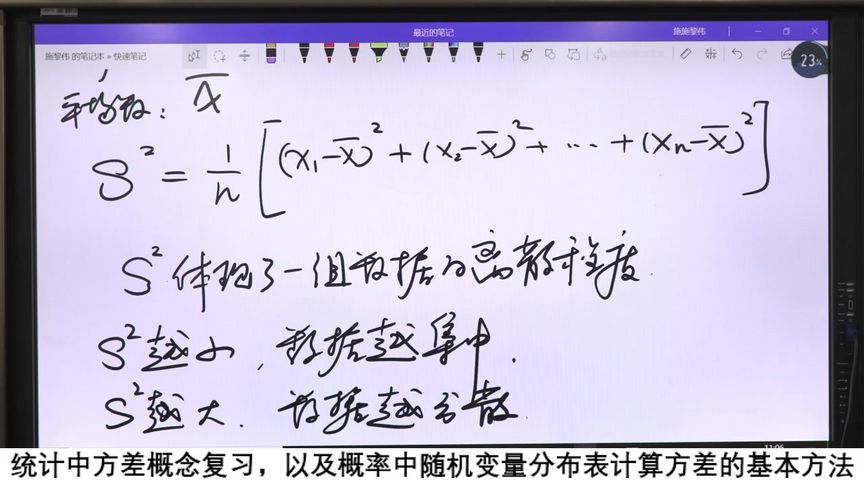 最近的笔记
施施黎伟
施黎伟 的笔记本 » 快速笔记
23%
平均数: x̄
S² = 1/n [(x₁-x̄)² + (x₂-x̄)² + … + (xₙ-x̄)²]
S² 体现了一组数据的离散程度.
S² 越小, 数据越集中.
S² 越大. 数据越分散.
11:06
统计中方差概念复习，以及概率中随机变量分布表计算方差的基本方法